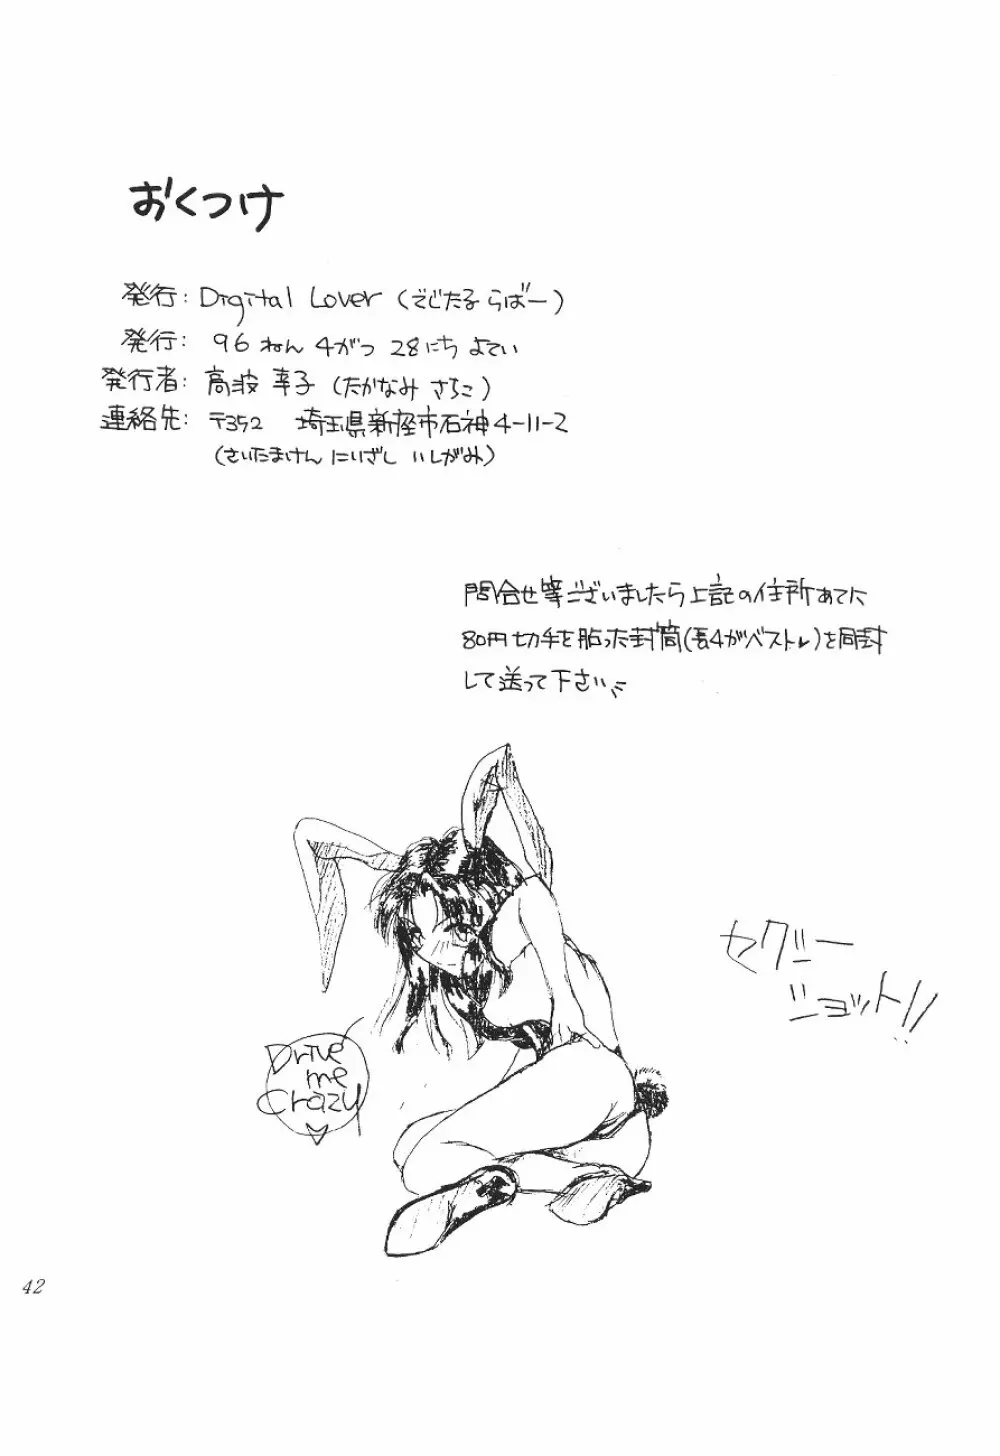 おくつけ
発行: Digital Lover (でじたる らばー)
発行: 96 ねん 4がつ 28にち よてい
発行者: 高波 幸子 (たかなみ さちこ)
連絡先: 〒352 埼玉県新座市石神4-11-2
(さいたまけん にいざし いしがみ)
問合せ等ございましたら上記の住所あてに
80円切手を貼った封筒(長4がベスト♥)を同封
して送って下さい
セクシー
ショット!!
Drive
me
Crazy
42